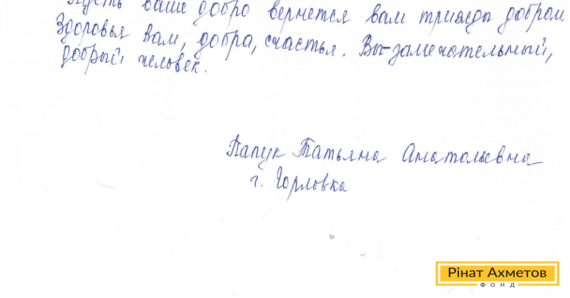 Пусть ваше добро вернется вам трижды добром.
Здоровья вам, добра, счастья. Вы-замечательный,
добрый человек.
Папук Татьяна Анатольевна
г. Горловка
Рінат Ахметов
ФОНД